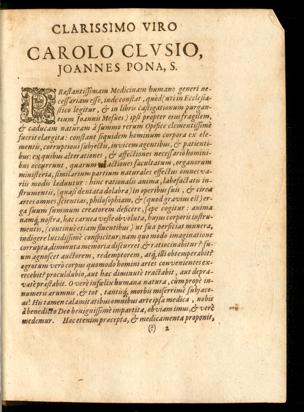 CLARISSIMO VIRO
CAROLO CLVSIO,
JOANNES PONA, S.
PRæstantissimam Medicinam humano generi ne-
cessariam esse, inde constat, quòd (ut in Ecclesia-
stico legitur, & in libro castigationum purgan-
tum Joannis Mesues) ipsi propter eius fragilem,
& caducam naturam à summo rerum Opifice clementissimè
fuerit elargita: constant siquidem hominum corpora ex ele-
mentis, corruptioni subjectis, invicem agentibus, & patienti-
bus: ex quibus alterationes, & affectiones necessariò homini-
bus occurrunt, quarum actiones facultatum, organorum
ministeria, similarium partium naturales effectus omnes va-
riis modis læduntur: hinc rationalis anima, labefactato in-
strumento, (quasi dentata dolabra) in operibus suis, & circa
artes omnes, scientias, philosophiam, & (quod gravius est) er-
ga suum summum creatorem deficere, sæpe cogitur. anima
namq; nostra, hac carnea veste obvoluta, hujus corporis instru-
mentis, (continuò etiam fluentibus) ut sua perficiat munera,
indigere lucidissimè conspicitur; nam quo modo imaginatione
corrupta, diminuta memoria discurret & ratiocinabitur? su-
um agnoscet auctorem, redemptorem, atq; illi obtemperabit?
ægrotum verò corpus quomodo homini artes convenientes ex-
ercebit? proculdubio, aut hac diminutè tractabit, aut depra-
vatè præstabit. O verè infelix humana natura, cùm propè in-
numeris ærumnis, & tot, tantisq; morbis miserrimè subjace-
as! His tamen calamitatibus omnibus arte ipsa medica, nobis
à benedicto Deo benignissimè impartita, obviam imus, & verè
medemur. Hac etenim præcepta, & medicamenta proponit,
(?) 2